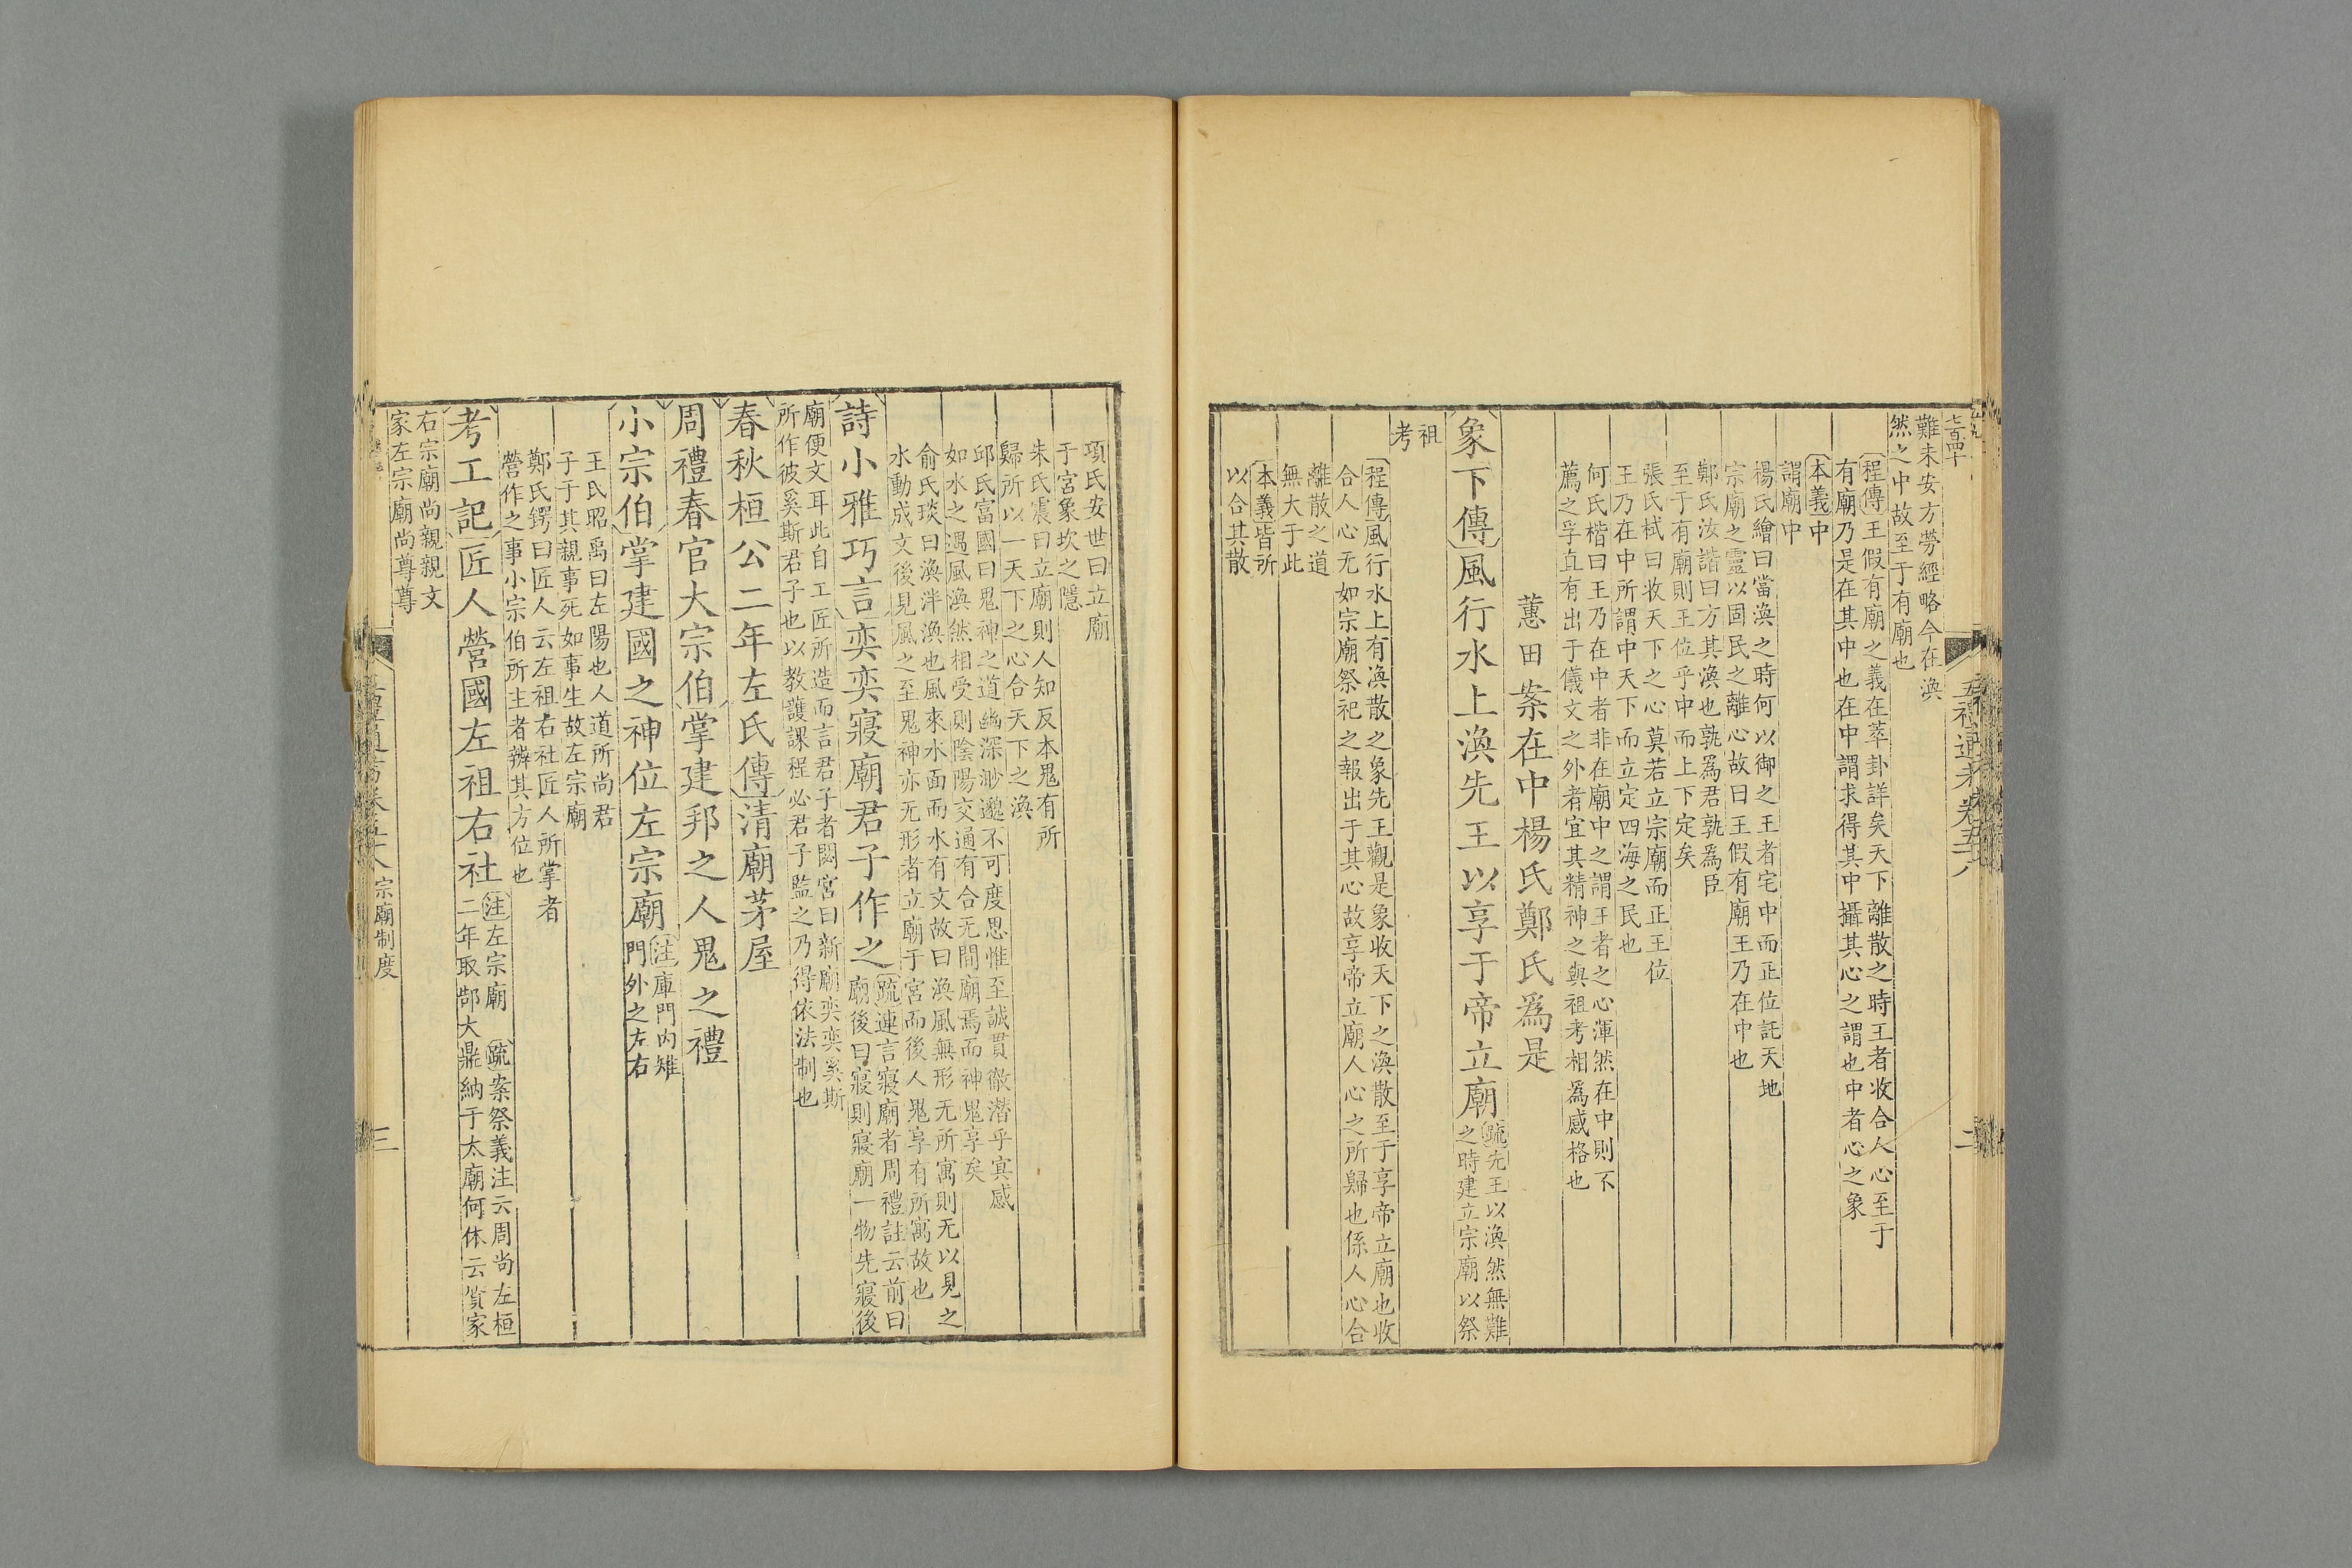 七百四十
五禮通考卷五十八
二
難未安方勞經略今在渙
然之中故至于有廟也
程傳王假有廟之義在萃卦詳矣天下離散之時王者收合人心至于
有廟乃是在其中也在中謂求得其中攝其心之謂也中者心之象
本義中
謂廟中
楊氏繪曰當渙之時何以御之王者宅中而正位託天地
宗廟之靈以固民之離心故曰王假有廟王乃在中也
鄭氏汝諧曰方其渙也孰爲君孰爲臣
至于有廟則王位乎中而上下定矣
張氏栻曰收天下之心莫若立宗廟而正王位
王乃在中所謂中天下而立定四海之民也
何氏楷曰王乃在中者非在廟中之謂王者之心渾然在中則不
薦之孚直有出于儀文之外者宜其精神之與祖考相爲感格也
蕙田案在中楊氏鄭氏爲是
象下傳風行水上渙先王以享于帝立廟
疏先王以渙然無難
之時建立宗廟以祭
祖
考
程傳風行水上有渙散之象先王觀是象收天下之渙散至于享帝立廟也收
合人心无如宗廟祭祀之報出于其心故享帝立廟人心之所歸也係人心合
離散之道
無大于此
本義皆所
以合其散
項氏安世曰立廟
于宮象坎之隱
朱氏震曰立廟則人知反本鬼有所
歸所以一天下之心合天下之渙
邱氏富國曰鬼神之道幽深渺邈不可度思惟至誠貫徹潛乎寘感
如水之遇風渙然相受則陰陽交通有合无間廟焉而神鬼享矣
俞氏琰曰渙泮渙也風來水面而水有文故曰渙風無形无所寓則无以見之
水動成文後見風之至鬼神亦无形者立廟于宮而後人鬼享有所寓故也
詩小雅巧言奕奕寢廟君子作之
疏連言寢廟者周禮註云前曰
廟後曰寢則寢廟一物先寢後
廟便文耳此自工匠所造而言君子者閟宮曰新廟奕奕奚斯
所作彼奚斯君子也以教護課程必君子監之乃得依法制也
春秋桓公二年左氏傳清廟茅屋
周禮春官大宗伯掌建邦之人鬼之禮
小宗伯掌建國之神位左宗廟
注庫門內雉
門外之左右
王氏昭禹曰左陽也人道所尚君
子于其親事死如事生故左宗廟
鄭氏鍔曰匠人云左祖右社匠人所掌者
營作之事小宗伯所主者辨其方位也
考工記匠人營國左祖右社
注左宗廟 疏案祭義注云周尚左桓
二年取郜大鼎納于太廟何休云質家
右宗廟尚親親文
家左宗廟尚尊尊
宗廟制度
三